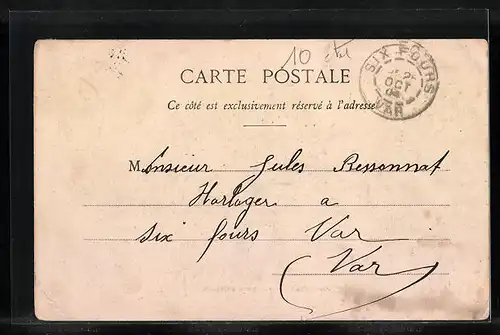 10
CARTE POSTALE
SIX FOURS
OCT
VAR
Ce côté est exclusivement réservé à l'adresse
Monsieur Jules Bessonnat
Horloger a
Six fours Var
Var